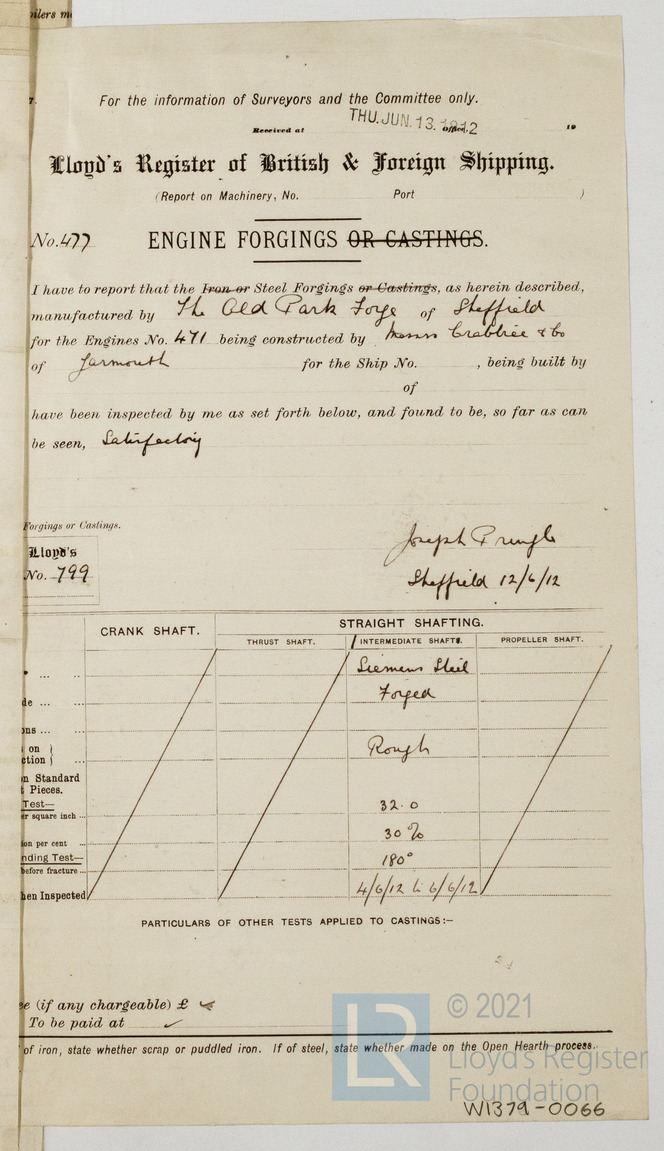 For the information of Surveyors and the Committee only.
Received at THU. JUN. 13. 1912 Office, 19
Lloyd's Register of British & Foreign Shipping.
(Report on Machinery, No. Port )
No. 477 ENGINE FORGINGS OR CASTINGS.
I have to report that the Iron or Steel Forgings or Castings, as herein described,
manufactured by The Old Park Forge of Sheffield
for the Engines No. 471 being constructed by Messrs Crabtree & Co
of Yarmouth for the Ship No. , being built by
of
have been inspected by me as set forth below, and found to be, so far as can
be seen, Satisfactory
Forgings or Castings.
Lloyd's
No. 799
Joseph Pringle
Sheffield 12/6/12
CRANK SHAFT. STRAIGHT SHAFTING.
THRUST SHAFT. 1 INTERMEDIATE SHAFTS. PROPELLER SHAFT.
Siemens Steel
Forged
on }
ction } Rough
n Standard
t Pieces.
Test—
er square inch ... 32.0
ion per cent ... 30%
nding Test—
before fracture ... 180°
hen Inspected 4/6/12 to 6/6/12
PARTICULARS OF OTHER TESTS APPLIED TO CASTINGS:—
e (if any chargeable) £
To be paid at
of iron, state whether scrap or puddled iron. If of steel, state whether made on the Open Hearth process.
LR © 2021
Lloyd's Register
Foundation
W1379-0066